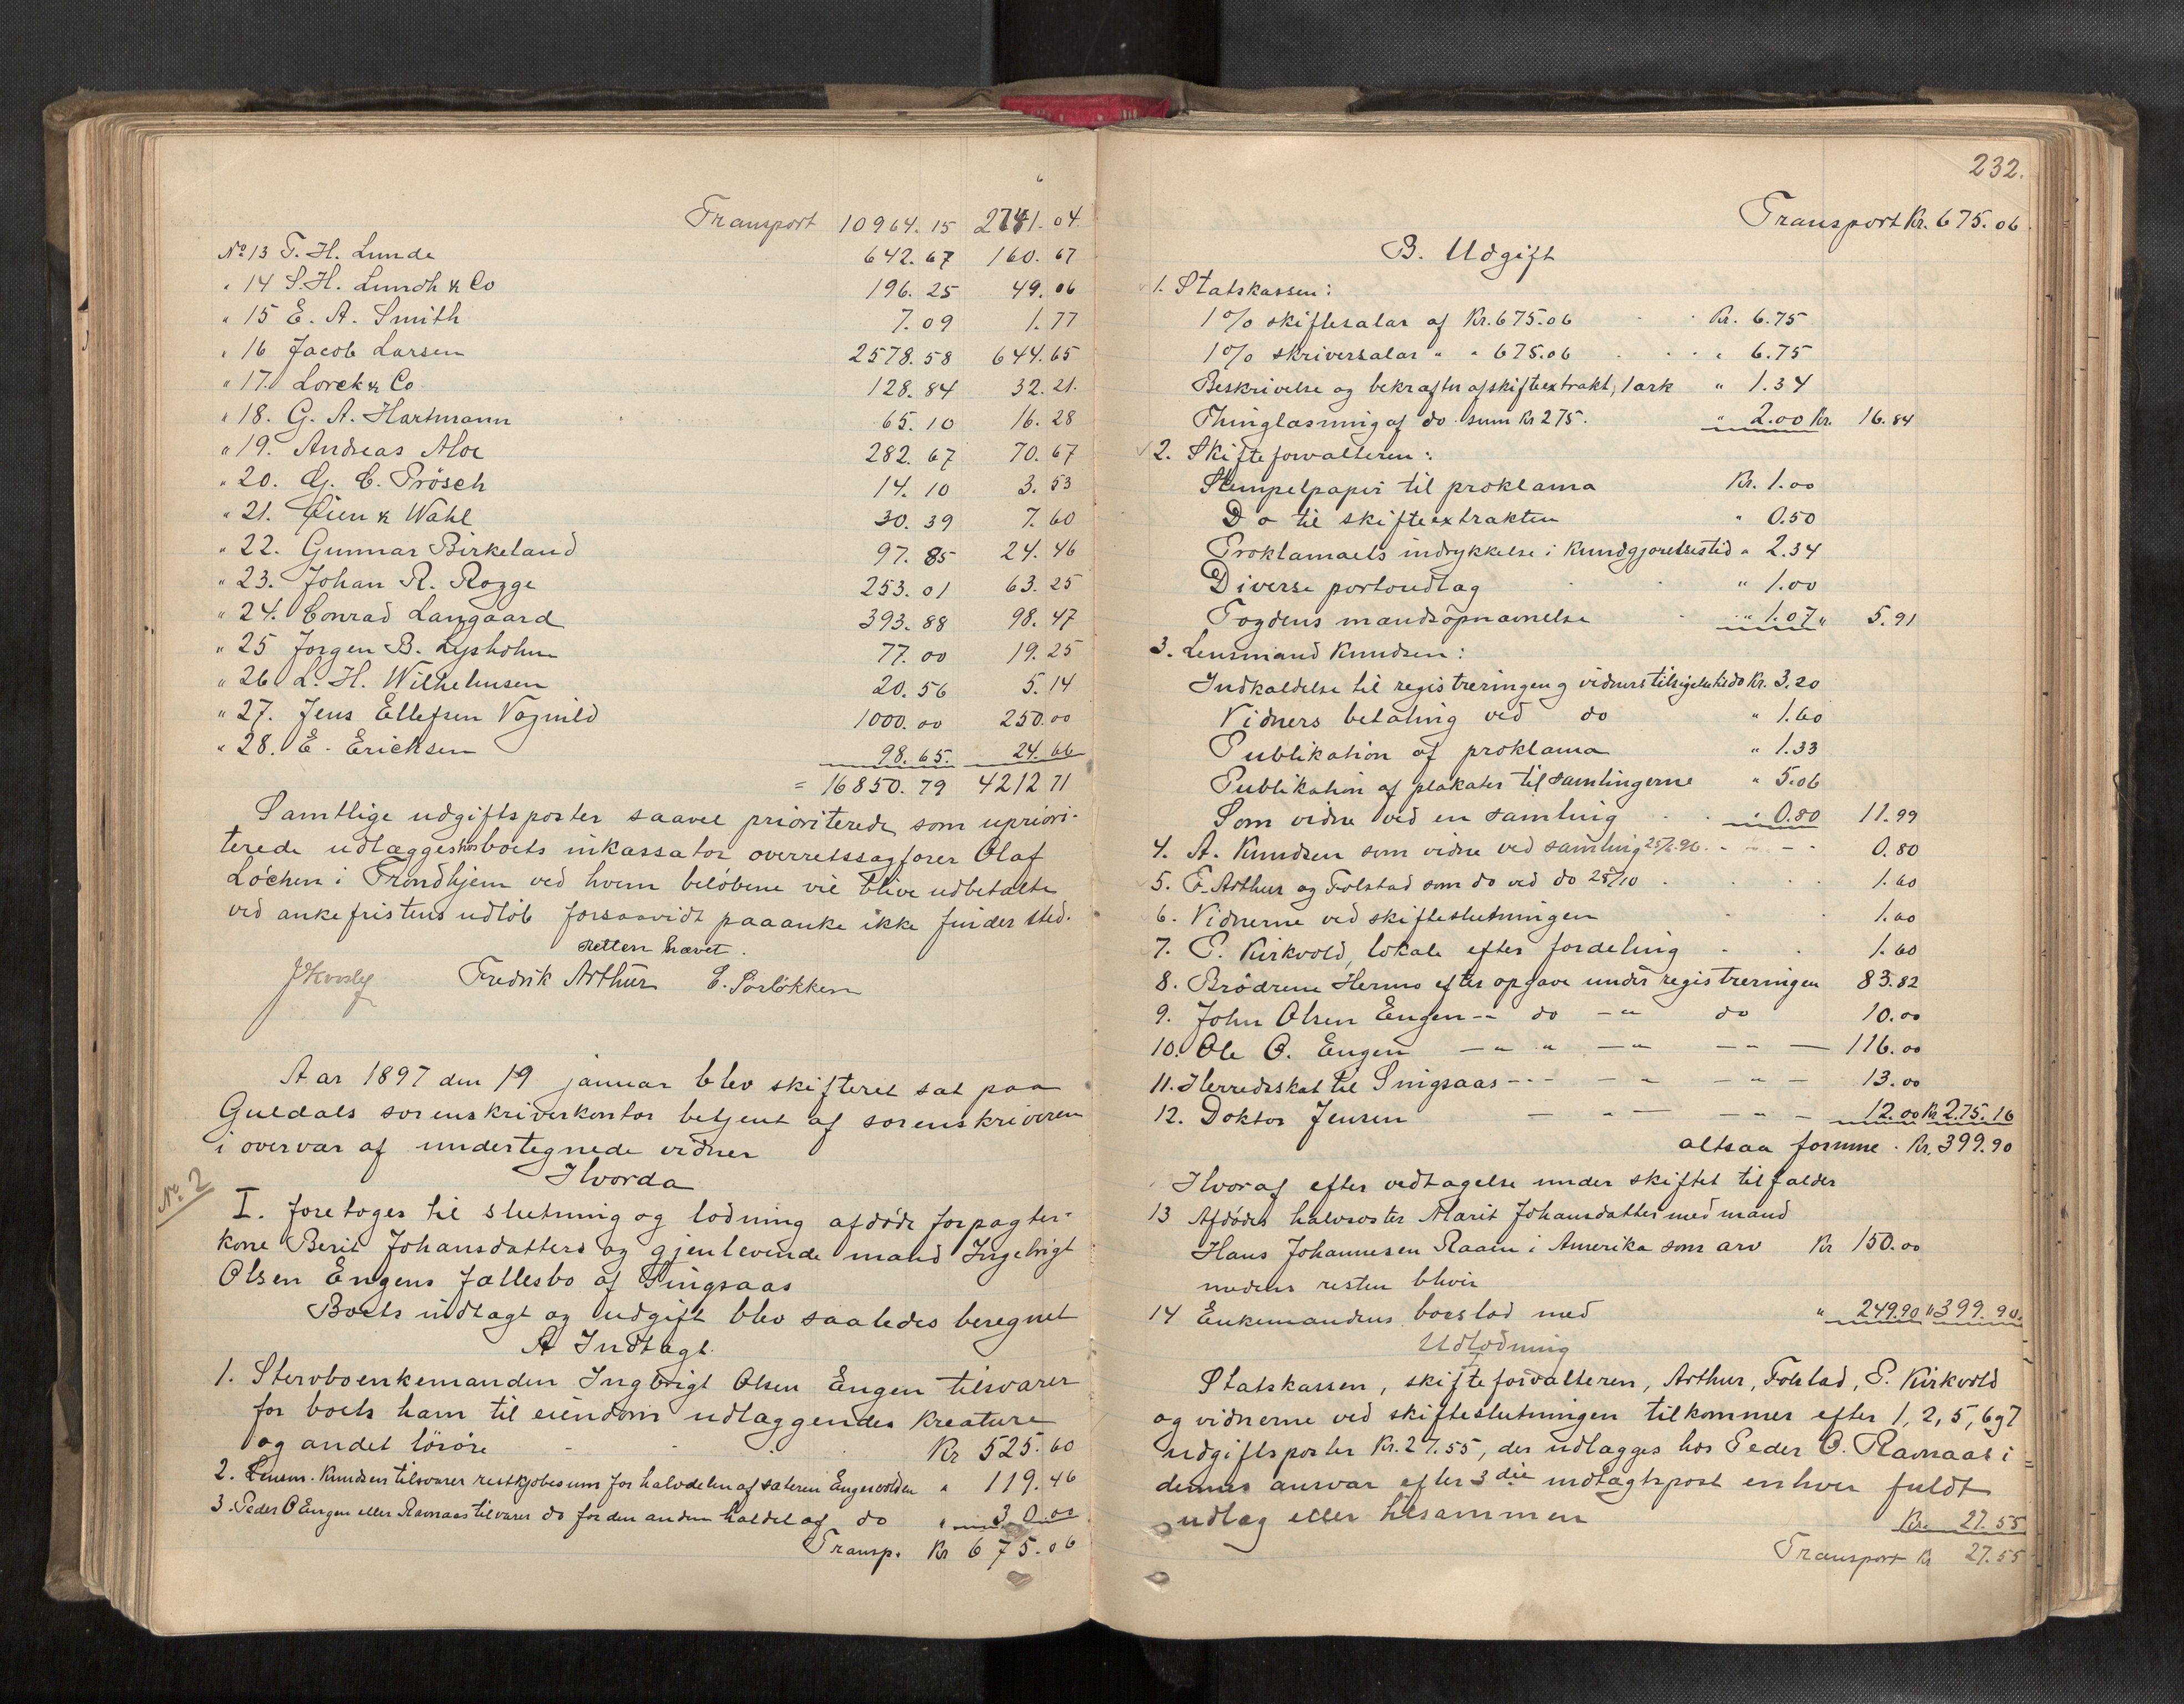 Transport 10964.15 2741.04.
No 13 T. H. Lunde 642.67 160.67
" 14 S. H. Lundh & Co 196.25 49.06
" 15 E. A. Smith 7.09 1.77
" 16 Jacob Larsen 2578.58 644.65
" 17. Lorck & Co 128.84 32.21.
" 18. G. A. Hartmann 65.10 16.28
" 19. Andreas Moe 282.67 70.67
" 20. G. C. Prösch 14.10 3.53
" 21. Øien & Wahl 30.39 7.60
" 22. Gunnar Birkeland 97.85 24.46
" 23. Johan R. Rogge 253.01 63.25
" 24. Conrad Langaard 393.88 98.47
" 25 Jørgen B. Lysholm 77.00 19.25
" 26 L. H. Wilhelmsen 20.56 5.14
" 27. Jens Ellefsen Vognild 1000.00 250.00
" 28. E. Ericksen 98.65. 24.66
= 16850.79 4212 71
Samtlige udgiftsposter saavel prioriterede som upriori-
terede udlægges hos boets inkassator overretssagfører Olaf
Løchen i Trondhjem ved hvem beløbene vil blive udbetalte
ved ankefristens udløb forsaavidt paaanke ikke finder sted.
Retten hævet.
Fredrik Arthur E. Porløkken
Aar 1897 den 19 januar blev skifteret sat paa
Guldals sorenskriverkontor betjent af sorenskriveren
i overvær af undertegnede vidner
Hvorda
No. 2
I. foretoges til slutning og lodning afdøde forpagter-
kone Berit Johansdatters og gjenlevende mand Ingebrigt
Olsen Engens fællesbo af Singsaas
Boets indtægt og udgift blev saaledes beregnet
A Indtægt.
1. Stervboenkemanden Ingbrigt Olsen Engen tilsvarer
for boets ham til eiendom udlæggendes kreature
og andet løsøre Kr 525.60
2. Lensm. Knudsen tilsvarer restkjøbesum for halvdelen af sæteren Engesvolden " 119.46
3. Peder O Engen eller Ramaas tilsvarer do for den anden haldel af do " 30.00
Transp. Kr 675.06
232.
Transport Kr. 675.06
B. Udgift
1. Statskassen:
1% skiftesalær af Kr. 675.06 Kr. 6.75
1% skriversalær " " 675.06 " 6.75
Beskrivelse og bekræftn af skifteextrakt, 1 ark " 1.34
Thinglæsning af do sum Kr 275. " 2.00 Kr. 16.84
2. Skifteforvalteren:
Stempelpapir til proklama Kr. 1.00
Do til skifteextrakten " 0.50
Proklamaets indrykkelse i Kundgjørelsestid " 2.34
Diverse portoudlæg " 1.00
Fogdens mandsopnævnelse " 1.07 " 5.91
3. Lensmand Knudsen:
Indkaldelse til registreringen og vidners tilsigelse do Kr. 3.20
Vidners betaling ved do " 1.60
Publikation af proklama " 1.33
Publikation af plakater til samlingerne " 5.06
Som vidne ved en samling " 0.80 11.99
4. A. Knudsen som vidne ved samling 25/2.96 0.80
5. F. Arthur og Folstad som do ved do 25/10 1.60
6. Vidnerne ved skifteslutningen 1.60
7. P. Kirkvold, lokale efter fordeling 1.60
8. Brødrene Hermo efter opgave under registreringen 83.82
9. John Olsen Engen -"- do -"- do 10.00
10. Ole O. Engen - " " - " - " - 116.00
11. Herredsskat til Singsaas - - - " - " - 13.00
12. Doktor Jensen - " - - " - 12.00 Kr 275.16
altsaa formue. Kr. 399.90
Hvoraf efter vedtagelse under skiftet tilfalder
13 Afdødes halvsøster Marit Johansdatter med mand
Hans Johannesen Raaen i Amerika som arv Kr 150.00
medens resten bliver
14 Enkemandens boeslod med " 249.90 " 399.90.
Udlodning
I
Statskassen, skifteforvalteren, Arthur, Folstad, P. Kirkvold
og vidnerne ved skifteslutningen tilkommer efter 1, 2, 5, 6 og 7
udgiftsposter Kr. 27.55, der udlægges hos Peder O. Ramaas i
dennes ansvar efter 3die indtægtspost enhver fuldt
udlæg eller tilsammen Kr. 27.55
Transport Kr 27.55